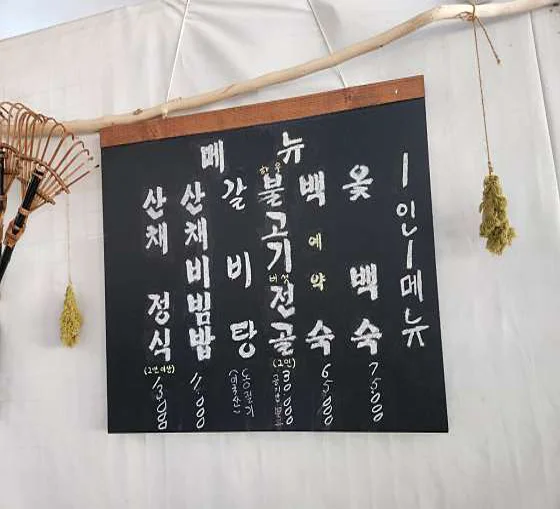 메뉴
1인 1메뉴
옻백숙
75000
백숙
예약
65000
불고기
버섯
전골
(2인)
30,000
갈비탕
동절기
(미국산)
산채비빔밥
11,000
산채 정식
(2인 이상)
13,000